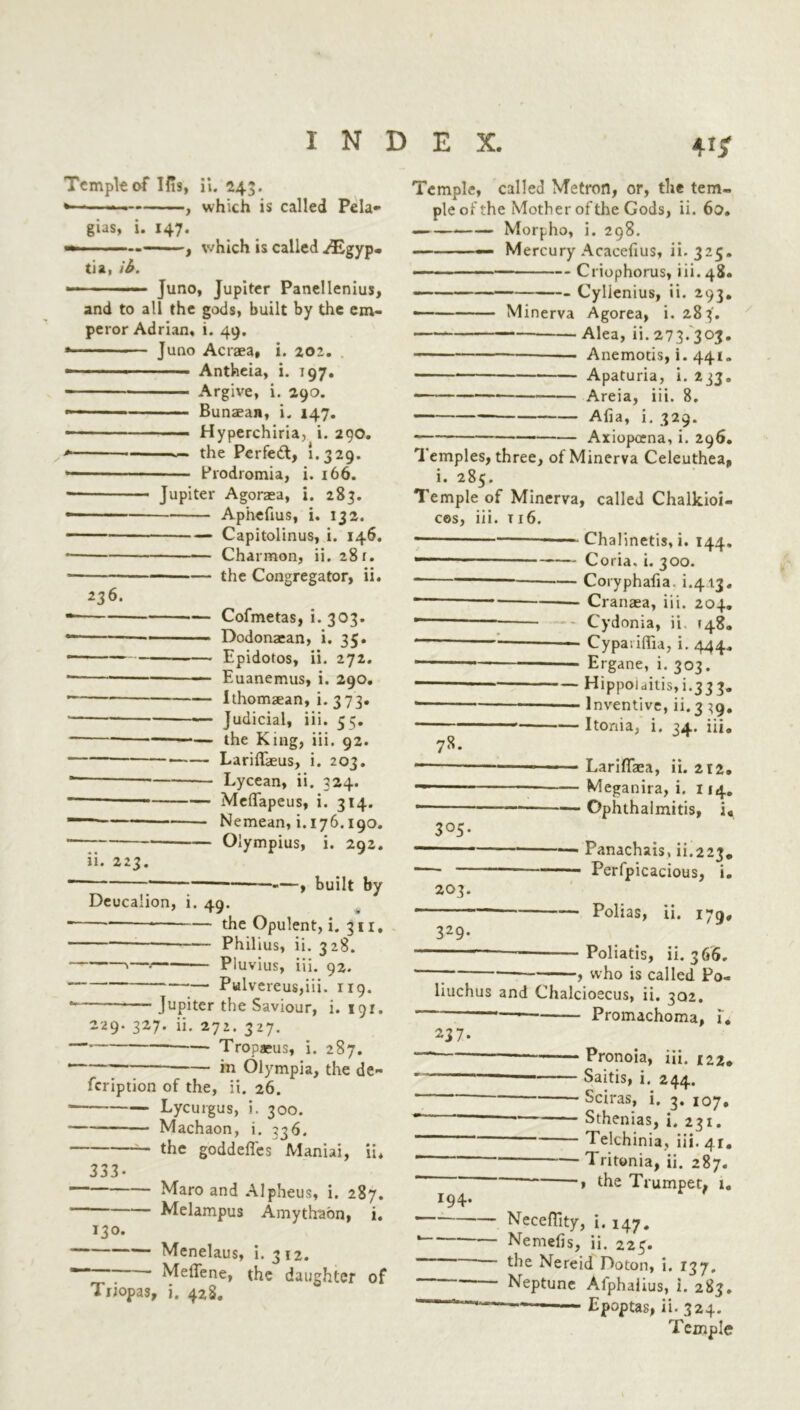 INDEX. 415
Temple of Iſis, ii. 243.
———, which is called Pela-
gias, i. 147.
———, which is called Ægyp-
tia, ib.
——— Juno, Jupiter Panellenius,
and to all the gods, built by the em-
peror Adrian, i. 49.
——— Juno Acræa, i. 202.
——— Antheia, i. 197.
——— Argive, i. 290.
——— Bunæan, i. 147.
——— Hyperchiria, i. 290.
——— the Perfect, i. 329.
——— Prodromia, i. 166.
——— Jupiter Agoræa, i. 283.
——— Apheſius, i. 132.
——— Capitolinus, i. 146.
——— Charmon, ii. 281.
——— the Congregator, ii.
236.
——— Coſmetas, i. 303.
——— Dodonæan, i. 35.
——— Epidotos, ii. 272.
——— Euanemus, i. 290.
——— Ithomæan, i. 373.
——— Judicial, iii. 55.
——— the King, iii. 92.
——— Lariſſæus, i. 203.
——— Lycean, ii. 324.
——— Meſſapeus, i. 314.
——— Nemean, i. 176. 190.
——— Olympius, i. 292.
ii. 223.
———, built by
Deucalion, i. 49.
——— the Opulent, i. 311.
——— Philius, ii. 328.
——— Pluvius, iii. 92.
——— Pulvereus, iii. 119.
——— Jupiter the Saviour, i. 191.
229. 327. ii. 272. 327.
——— Tropæus, i. 287.
——— in Olympia, the de-
ſcription of the, ii. 26.
——— Lycurgus, i. 300.
——— Machaon, i. 336.
——— the goddeſſes Maniai, ii.
333.
——— Maro and Alpheus, i. 287.
——— Melampus Amythaon, i.
130.
——— Menelaus, i. 312.
——— Meſſene, the daughter of
Triopas, i. 428.
Temple, called Metron, or, the tem-
ple of the Mother of the Gods, ii. 60.
——— Morpho, i. 298.
——— Mercury Acaceſius, ii. 325.
——— Criophorus, iii. 48.
——— Cyllenius, ii. 293.
——— Minerva Agorea, i. 283.
——— Alea, ii. 273. 303.
——— Anemotis, i. 441.
——— Apaturia, i. 233.
——— Areia, iii. 8.
——— Aſia, i. 329.
——— Axiopœna, i. 296.
Temples, three, of Minerva Celeuthea,
i. 285.
Temple of Minerva, called Chalkioi-
cos, iii. 116.
——— Chalinetis, i. 144.
——— Coria, i. 300.
——— Coryphaſia, i. 413.
——— Cranæa, iii. 204.
——— Cydonia, ii. 148.
——— Cypariſſia, i. 444.
——— Ergane, i. 303.
——— Hippolaitis, i. 333.
——— Inventive, ii. 339.
——— Itonia, i. 34. iii.
78.
——— Lariſſæa, ii. 212.
——— Meganira, i. 114.
——— Ophthalmitis, i.
305.
——— Panachais, ii. 223.
——— Perſpicacious, i.
203.
——— Polias, ii. 179.
329.
——— Poliatis, ii. 366.
———, who is called Po-
liuchus and Chalcioecus, ii. 302.
——— Promachoma, i.
237.
——— Pronoia, iii. 122.
——— Saitis, i. 244.
——— Sciras, i. 3. 107.
——— Sthenias, i. 231.
——— Telchinia, iii. 41.
——— Tritonia, ii. 287.
———, the Trumpet, i.
194.
——— Neceſſity, i. 147.
——— Nemeſis, ii. 225.
——— the Nereid Doton, i. 137.
——— Neptune Aſphalius, i. 283.
——— Epoptas, ii. 324.
Temple